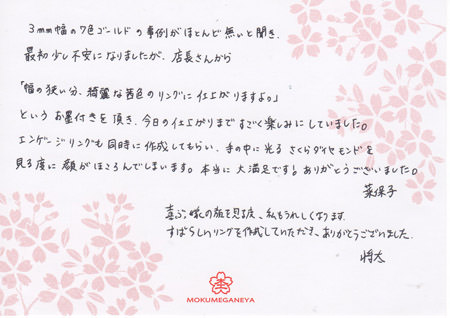 3mm幅の7色ゴールドの事例がほとんど無いと聞き、
最初少し不安になりましたが、店長さんから
「幅の狭い分、綺麗な茜色のリングに仕上がりますよ。」
というお墨付きを頂き、今日の仕上がりまですごく楽しみにしていました。
エンゲージリングも同時に作成してもらい、手の中に光るさくらダイヤモンドを
見る度に顔がほころんでしまいます。本当に大満足です！ありがとうございました。
菜保子
喜ぶ嫁の顔を見る度、私もうれしくなります。
すばらしいリングを作成していただき、ありがとうございました。
将太
MOKUMEGANEYA